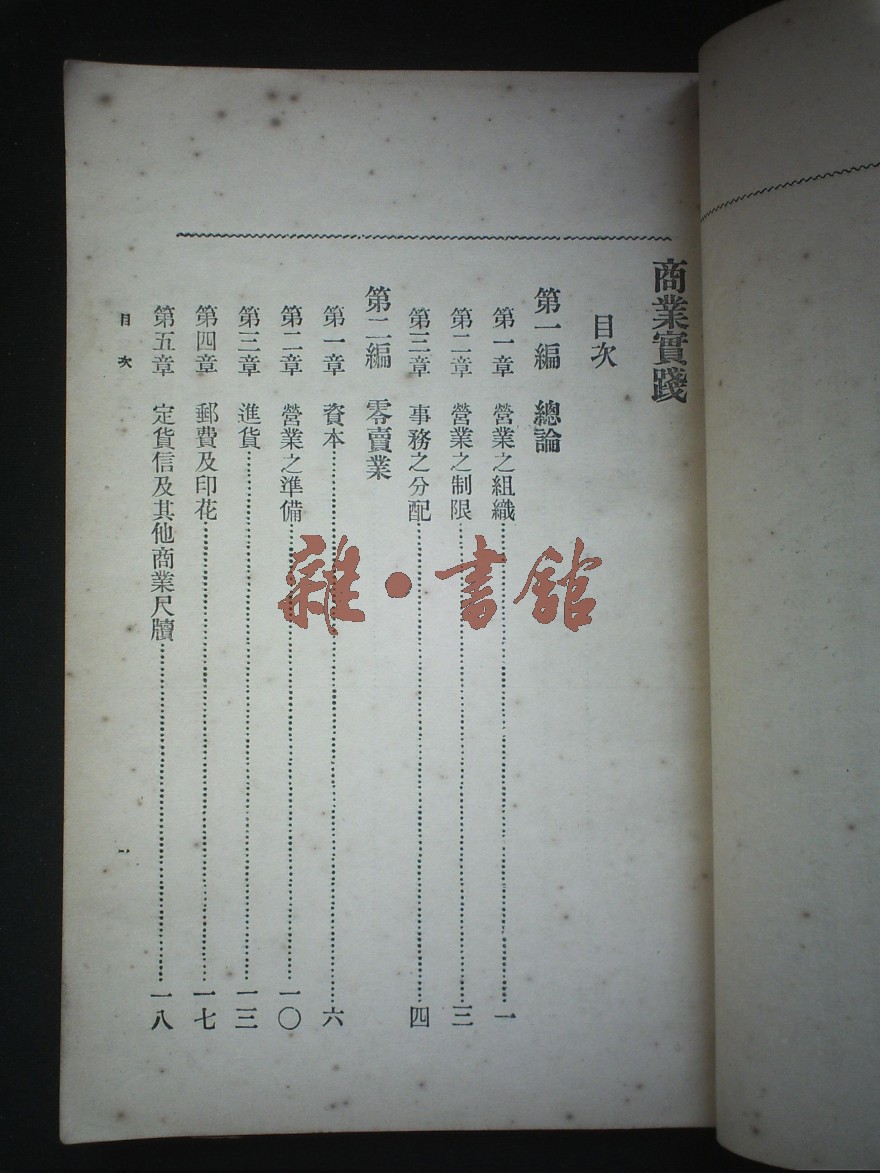 商業實踐
目次
第一編 總論
第一章 營業之組織……一
第二章 營業之制限……三
第三章 事務之分配……四
第二編 零賣業
第一章 資本……六
第二章 營業之準備……一〇
第三章 進貨……一三
第四章 郵費及印花……一七
第五章 定貨信及其他商業尺牘……一八
目次 一
雜·書館